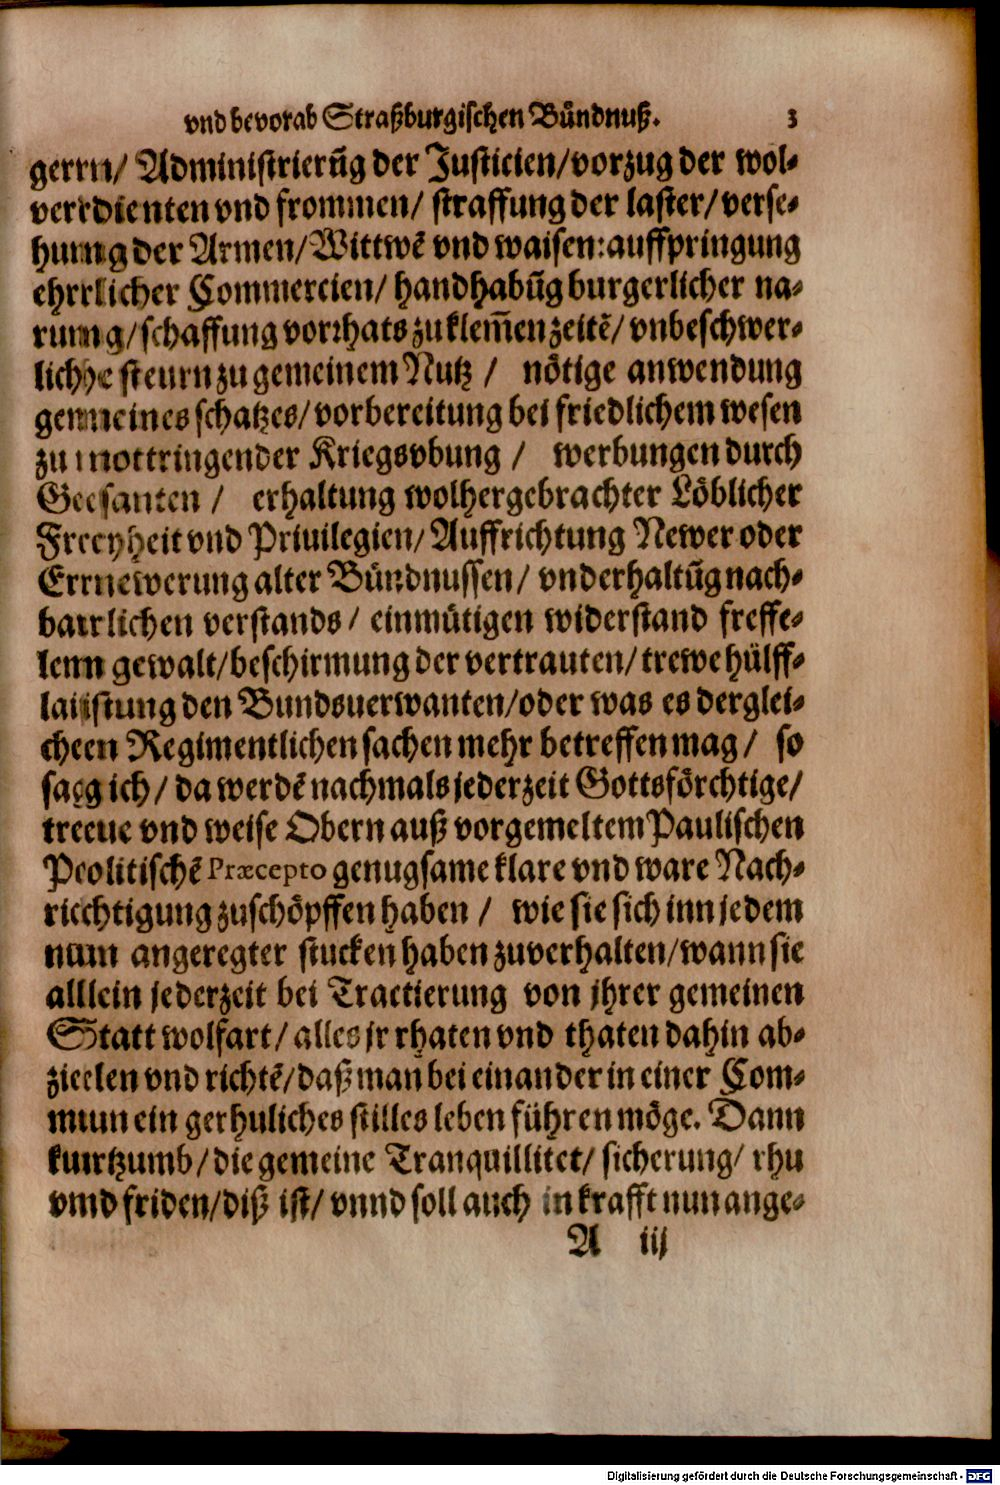 vnd bevorab Straßburgischen Bündnuß. 3
gern/ Administrierūg der Justicien/vorzug der wol-
verdienten vnd frommen/ straffung der laster/verse-
hung der Armen/Wittwē vnd waisen:auffpringung
ehrlicher Commercien/ handhabūg burgerlicher na-
rung/schaffung vorrhats zu klem̄en zeitē/ vnbeschwer-
liche steurn zu gemeinem Nutz / nötige anwendung
gemeines schatzes/vorbereitung bei friedlichem wesen
zu nottringender Kriegsvbung / werbungen durch
Gesanten / erhaltung wolhergebrachter Löblicher
Freyheit vnd Priuilegien/Auffrichtung Newer oder
Ernewerung alter Bündnussen/ vnderhaltūg nach-
barlichen verstands/ einmütigen widerstand freffe-
len gewalt/beschirmung der vertrauten/trewe hülff-
laistung den Bundsuerwanten/oder was es derglei-
chen Regimentlichen sachen mehr betreffen mag/ so
sag ich/ da werdē nachmals jederzeit Gottsförchtige/
treue vnd weise Obern auß vorgemeltem Paulischen
Politischē Præcepto genugsame klare vnd ware Nach-
richtigung zuschöpffen haben / wie sie sich inn jedem
nun angeregter stucken haben zuverhalten/wann sie
allein jederzeit bei Tractierung von jhrer gemeinen
Statt wolfart/alles jr rhaten vnd thaten dahin ab-
zielen vnd richtē/daß man bei einander in einer Com-
mun ein gerhuliches stilles leben führen möge. Dann
kurtzumb/die gemeine Tranquillitet/ sicherung/ rhu
vnd friden/diß ist/ vnnd soll auch in krafft nun ange-
A iij
Digitalisierung gefördert durch die Deutsche Forschungsgemeinschaft - DFG